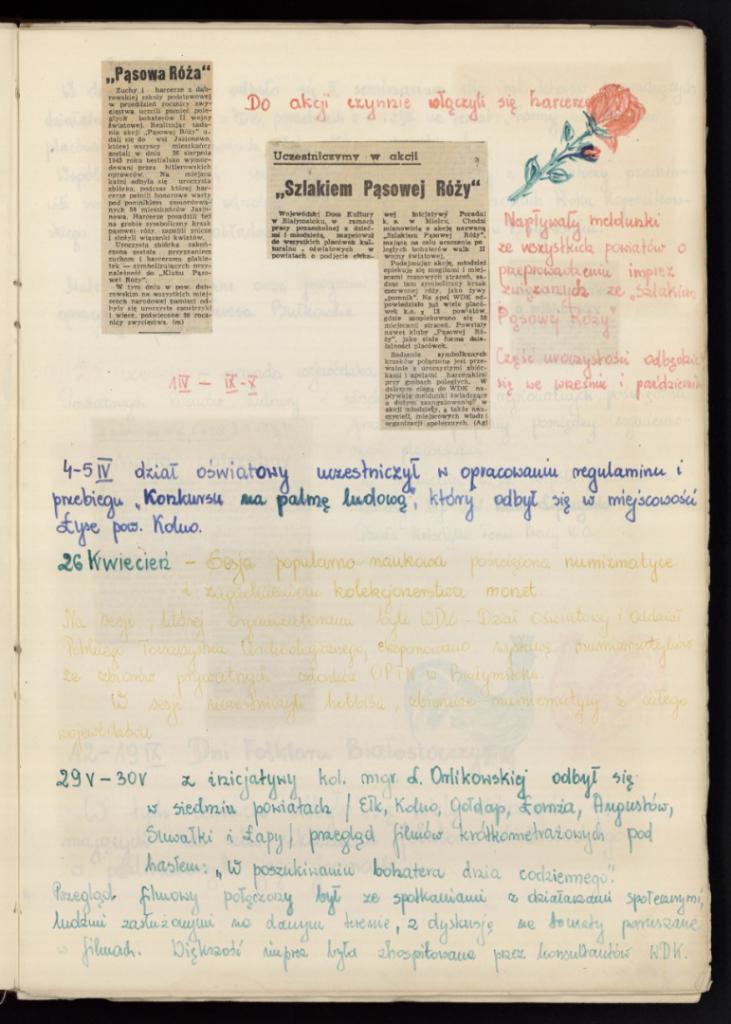 „Pąsowa Róża"
Zuchy i harcerze z dąb-
rowskiej szkoły podstawowej
w przeddzień rocznicy zwy-
cięstwa uczcili pamięć pole-
głych bohaterów II wojny
światowej. Realizując zada-
nia akcji „Pąsowej Róży" u-
dali się do wsi Jasionowo,
której wszyscy mieszkańcy
zostali w dniu 26 sierpnia
1943 roku bestialsko wymor-
dowani przez hitlerowskich
oprawców. Na miejscu
kaźni odbyła się uroczysta
zbiórka, podczas której har-
cerze pełnili honorowe warty
pod pomnikiem zamordowa-
nych 58 mieszkańców Jasio-
nowa. Harcerze posadzili też
na grobie symboliczny krzak
pąsowej róży, zapalili znicze
i złożyli wiązanki kwiatów.
Uroczysta zbiórka zakoń-
czona została przyznaniem
zuchom i harcerzom plakie-
tek — symbolizujących przy-
należność do „Klubu Pąso-
wej Róży".
W tym dniu w pow. dąb-
rowskim na wszystkich miej-
scach narodowej pamięci od-
były się uroczyste capstrzyki
i wiece, poświęcone 26 rocz-
nicy zwycięstwa. (m)
Do akcji czynnie włączyli się harcerze
Uczestniczymy w akcji
„Szlakiem Pąsowej Róży"
Wojewódzki Dom Kultury
w Białymstoku, w ramach
pracy pozaszkolnej z dzieć-
mi i młodzieżą, zaapelował
do wszystkich placówek kul-
turalno - oświatowych w
powiatach o podjęcie cieka-
wej inicjatywy Poradni
k.o. w Mielcu. Chodzi
mianowicie o akcję nazwaną
„Szlakiem Pąsowej Róży",
mającą na celu uczczenie po-
ległych bohaterów walk II
wojny światowej.
Podejmując akcję, młodzież
opiekuje się mogiłami i miej-
scami masowych straceń, sa-
dząc tam symboliczny krzak
czerwonej róży, jako żywy
„pomnik". Na apel WDK od-
powiedziało już wiele placó-
wek k.o. z 13 powiatów,
gdzie zaopiekowano się 59
miejscami straceń. Powstały
nawet kluby „Pąsowej Ró-
ży", jako stała forma dzia-
łalności placówek.
Sadzenie symbolicznych
krzaków połączone jest prze-
ważnie z uroczystymi zbiór-
kami i apelami harcerskimi
przy grobach poległych. W
dalszym ciągu do WDK na-
pływają meldunki świadczące
o dużym zaangażowaniu w
akcji młodzieży, a także nau-
czycieli, miejscowych władz i
organizacji społecznych. (Ag)
Napływały meldunki
ze wszystkich powiatów o
przeprowadzeniu imprez
związanych ze „Szlakiem
Pąsowej Róży".
Część uroczystości odbędzie
się we wrześniu i październiku
1 IV — IX-X
4-5 IV dział oświatowy uczestniczył w opracowaniu regulaminu i
przebiegu „Konkursu na palmę ludową", który odbył się w miejscowości
Łyse pow. Kolno.
26 Kwiecień – Sesja popularno-naukowa poświęcona numizmatyce
i zagadnieniom kolekcjonerstwa monet.
Na sesji, której organizatorami byli WDK – Dział Oświatowy i Oddział
Polskiego Towarzystwa Archeologicznego, eksponowano wystawę numizmatyków
ze zbiorów prywatnych członków OPTN w Białymstoku.
W sesji uczestniczyli hobbiści, zbieracze-numizmatycy z całego
województwa
29V – 30V z inicjatywy kol. mgr L. Orlikowskiej odbył się
w siedmiu powiatach / Ełk, Kolno, Gołdap, Łomża, Augustów,
Suwałki i Łapy/ przegląd filmów krótkometrażowych pod
hasłem: „W poszukiwaniu bohatera dnia codziennego".
Przegląd filmowy połączony był ze spotkaniami z działaczami społecznymi,
ludźmi zasłużonymi na danym terenie, z dyskusją na tematy poruszane
w filmach. Większość imprez była zhospitowana przez konsultantów WDK.